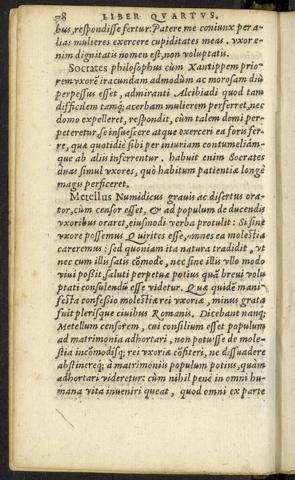 78 LIBER QVARTVS.
bus, respondisse fertur: Patere me coniunx per a-
lias mulieres exercere cupiditates meas. vxor e-
nim dignitatis nomen est, non voluptatis.
Socrates philosophus cùm Xantippem prio-
rem vxorē iracundam admodùm ac morosam diù
perpessus esset, admiranti Alcibiadi quod tam
difficilem tamq; acerbam mulierem perferret, nec
domo expelleret, respondit, cùm talem domi per-
peteretur, se insuescere atque exerceri ea foris fer-
re, quæ quotidiè sibi per iniuriam contumeliám-
que ab aliis inferrentur. habuit enim Socrates
duas simul vxores, quò habitum patientiæ longè
magis perficeret.
Metellus Numidicus grauis ac disertus ora-
tor, cùm censor esset, & ad populum de ducendis
vxoribus oraret, eiusmodi verba protulit: Si sine
vxore possemus Quirites esse, omnes ea molestia
careremus: sed quoniam ita natura tradidit, vt
nec cum illis satis cōmode, nec sine illis vllo modo
viui possit, saluti perpetuæ potius quā breui volu-
ptati consulendū esse videtur. Quæ quidē mani-
festa confessio molestiæ rei vxoriæ, minus grata
fuit plerisque ciuibus Romanis. Dicebant nanq;
Metellum censorem, cui consilium esset populum
ad matrimonia adhortari, non potuisse de mole-
stia incōmodisq; rei vxoriæ cōfiteri, ne dissuadere
abstinereq; à matrimoniis populum potius, quàm
adhortari videretur: cùm nihil penè in omni hu-
mana vita inueniri queat, quod omni ex parte